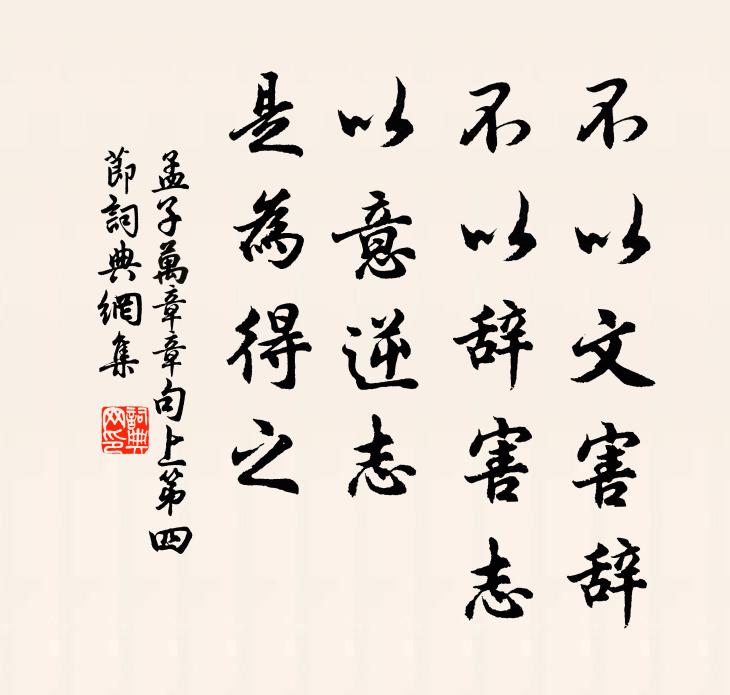 不以文害辞
不以辞害志
以意逆志
是為得之
孟子萬章章句上第四
節詞典網集
詞典网印